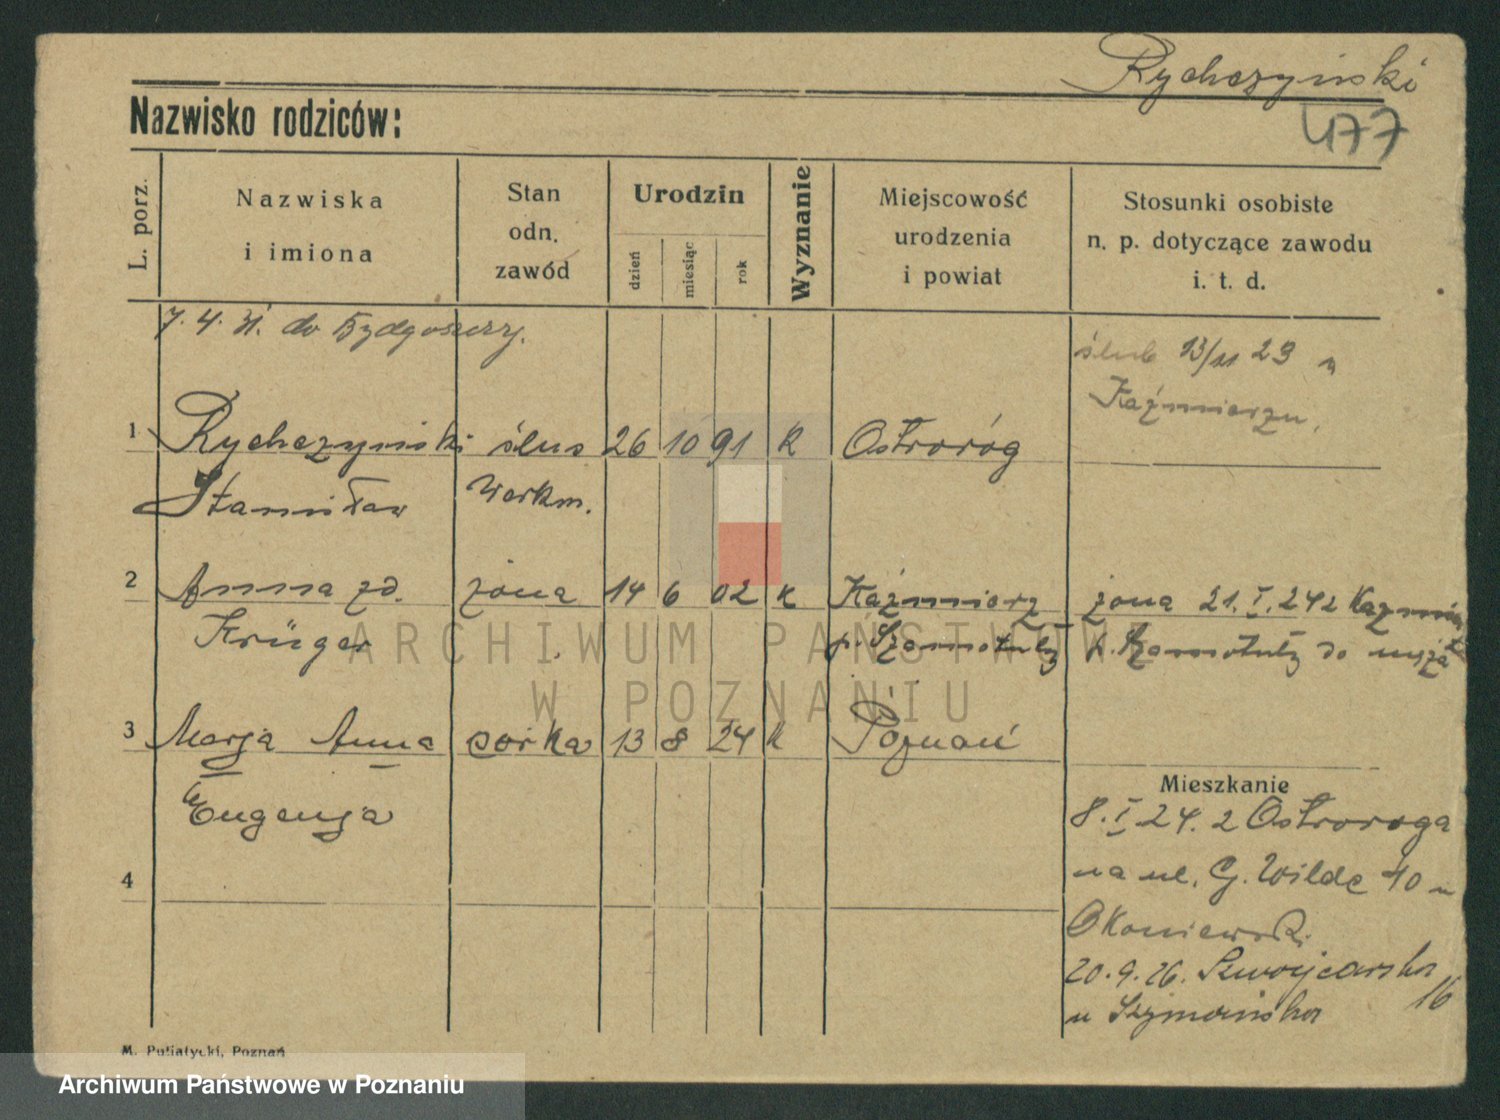 Rychczyński
Nazwisko rodziców:
477
L. porz.
Nazwiska
i imiona
Stan
odn.
zawód
Urodzin
dzień
miesiąc
rok
Wyznanie
Miejscowość
urodzenia
i powiat
Stosunki osobiste
n. p. dotyczące zawodu
i. t. d.
7. 4. 31. do Bydgoszczy.
ślub 13/11 23 w
Kaźmierzu.
1 Rychczyński ślus 26 10 91 k Ostroróg
Stanisław Werkm.
2 Anna zd. żona 14 6 02 k Kaźmierz żona 21. I. 24 z
Krüger p. Szamotuły p. Szamotuły do męża
3 Marja Anna córka 13 8 24 k Poznań
Eugenja
Mieszkanie
8. I 24. z Ostroroga
na ul. G. Wilde 40 u
Okoniewski
20. 9. 26. Szwajcarska
16
u Szymańska
4
M. Putiatycki, Poznań
ARCHIWUM PAŃSTWOWE
W POZNANIU
Archiwum Państwowe w Poznaniu